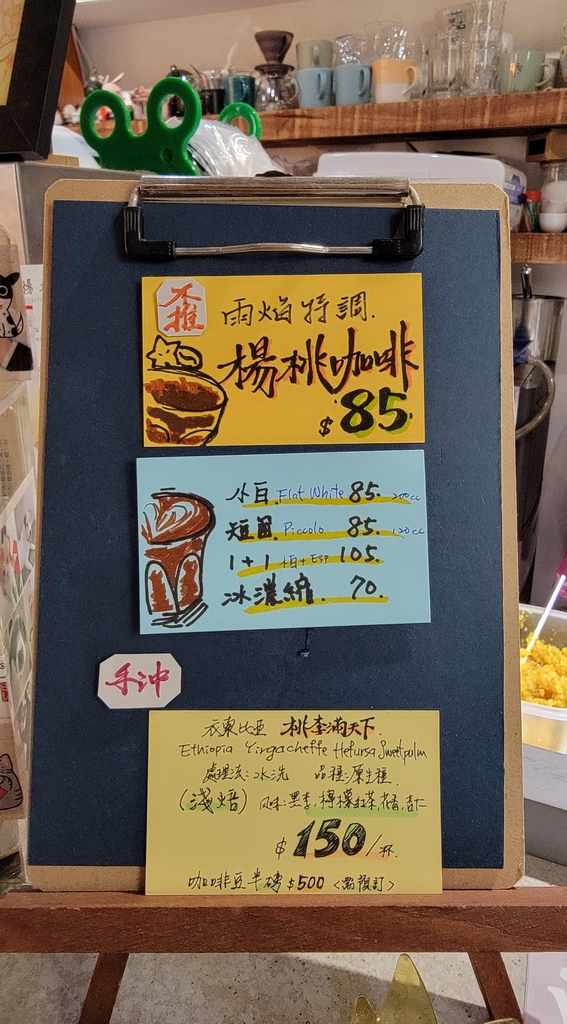 不推
雨焰特調.
楊桃咖啡
$85.
小白. Flat White 85. 200cc
短笛. Piccolo 85. 120cc
1+1 小白+Esp 105.
冰濃縮. 70.
手沖
衣索比亞 桃李滿天下.
Ethiopia Yirgacheffe Hafursa Sweet plum
處理法:水洗 品種:原生種
(淺焙) 风味:黑李,檸檬紅茶,花香,杏仁
$150/杯.
咖啡豆半磅$500 <需預訂>